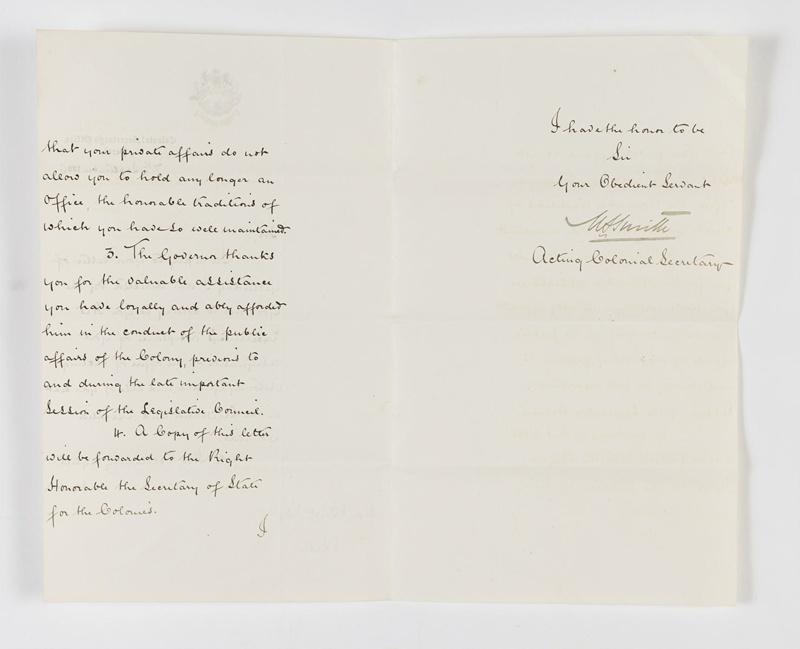 that your private affairs do not
allow you to hold any longer an
Office, the honorable traditions of
which you have so well maintained.
3. The Governor thanks
you for the valuable assistance
you have loyally and ably afforded
him in the conduct of the public
affairs of the Colony, previous to
and during the late important
Session of the Legislative Council.
4. A Copy of this letter
will be forwarded to the Right
Honorable the Secretary of State
for the Colonies.
I
I have the honor to be
Sir
Your Obedient Servant
Smith
Acting Colonial Secretary